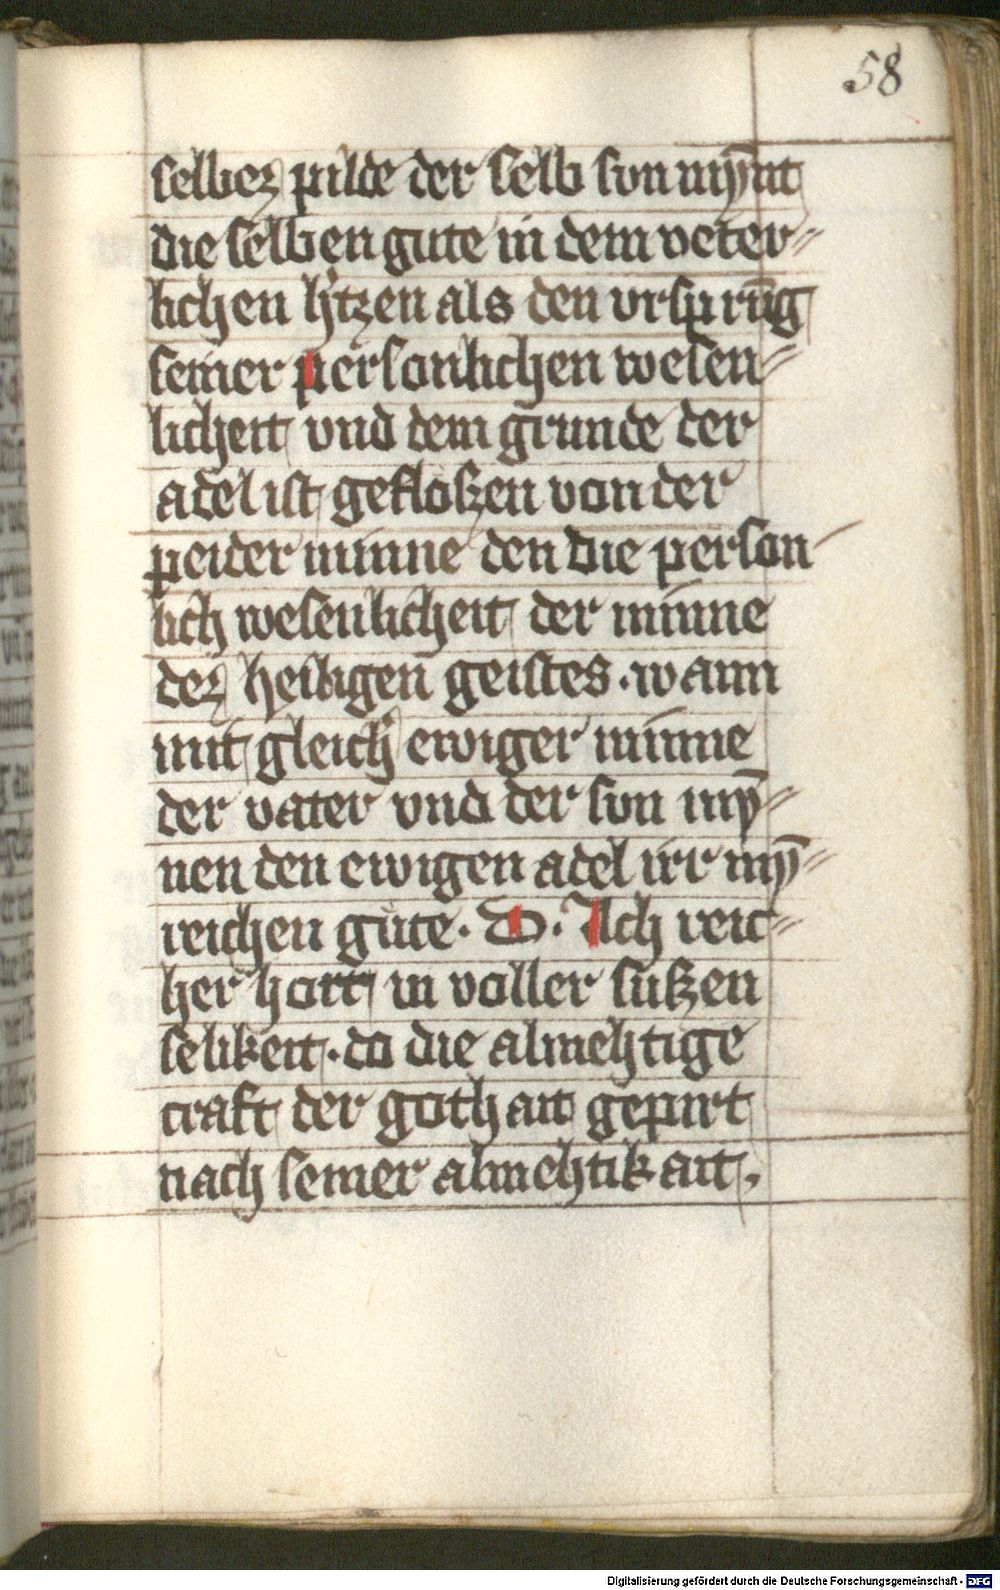 58
selbez pilde der selb son mȳnt
die selben gute in dem veter⸗
lichen h̔tzen als den vrsprūg
seiner personlichen wesen⸗
licheit vnd dem grunde der
adel ist geflossen von der
peider minne den die person
lich wesenlicheit der minne
dez heiligen geistes · wann
mit gleich̔ ewiger minne
der vater vnd der son mȳ⸗
nen den ewigen adel irr mȳ⸗
reichen gute · D. Ach reic⸗
her hort in voller sußen
selikeit · do die almehtige
craft der gothait gepirt
nach seiner almehtikait ·
Digitalisierung gefördert durch die Deutsche Forschungsgemeinschaft - DFG